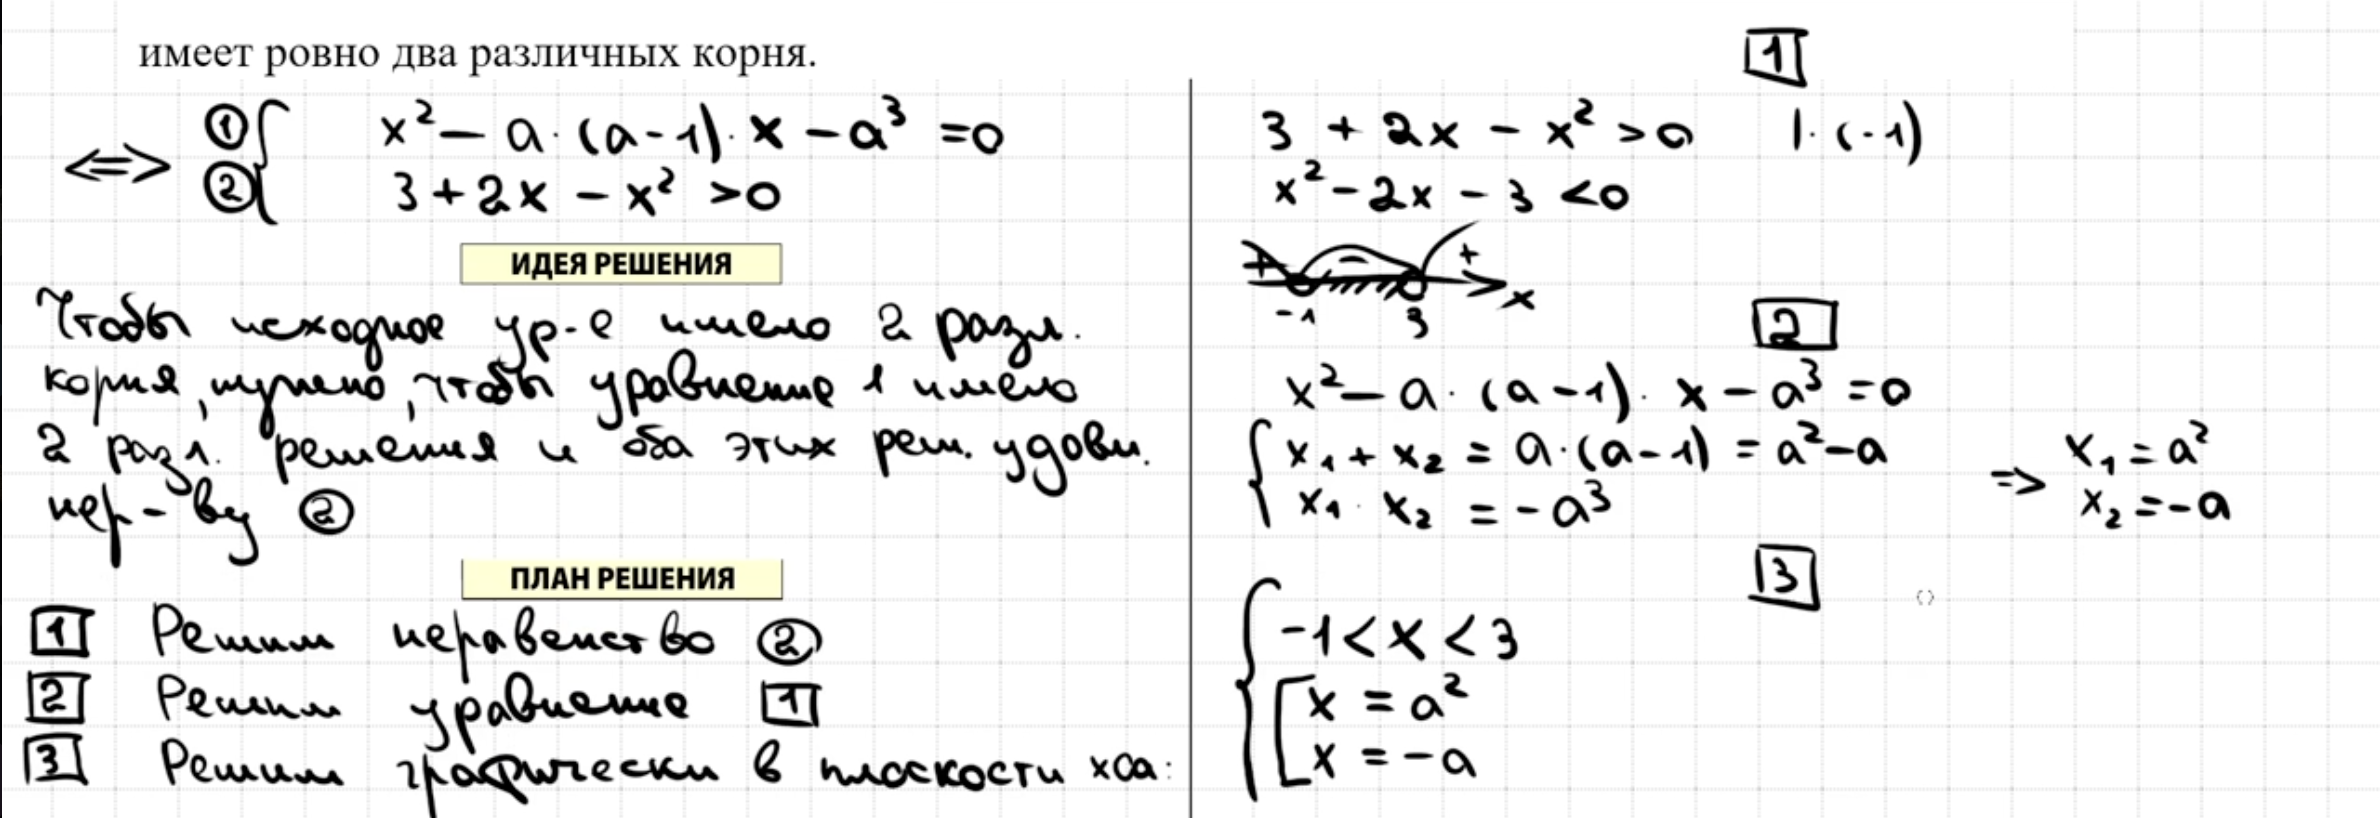 имеет ровно два различных корня.
<=> ① { x² – a·(a-1)·x – a³ = 0
② 3 + 2x – x² > 0
ИДЕЯ РЕШЕНИЯ
Чтобы исходное ур-е имело 2 разл.
корня, нужно, чтобы уравнение 1 имело
2 разл. решения и оба этих реш. удовл.
нер-ву ②
ПЛАН РЕШЕНИЯ
1 Решим неравенство ②
2 Решим уравнение 1
3 Решим графически в плоскости xOa:
1
3 + 2x – x² > 0 |·(-1)
x² – 2x – 3 < 0
+ – +
-1 3 x
2
x² – a·(a-1)·x – a³ = 0
{ x₁ + x₂ = a·(a-1) = a²-a
x₁·x₂ = -a³
=> x₁ = a²
x₂ = -a
3
{ -1 < x < 3
[ x = a²
x = -a